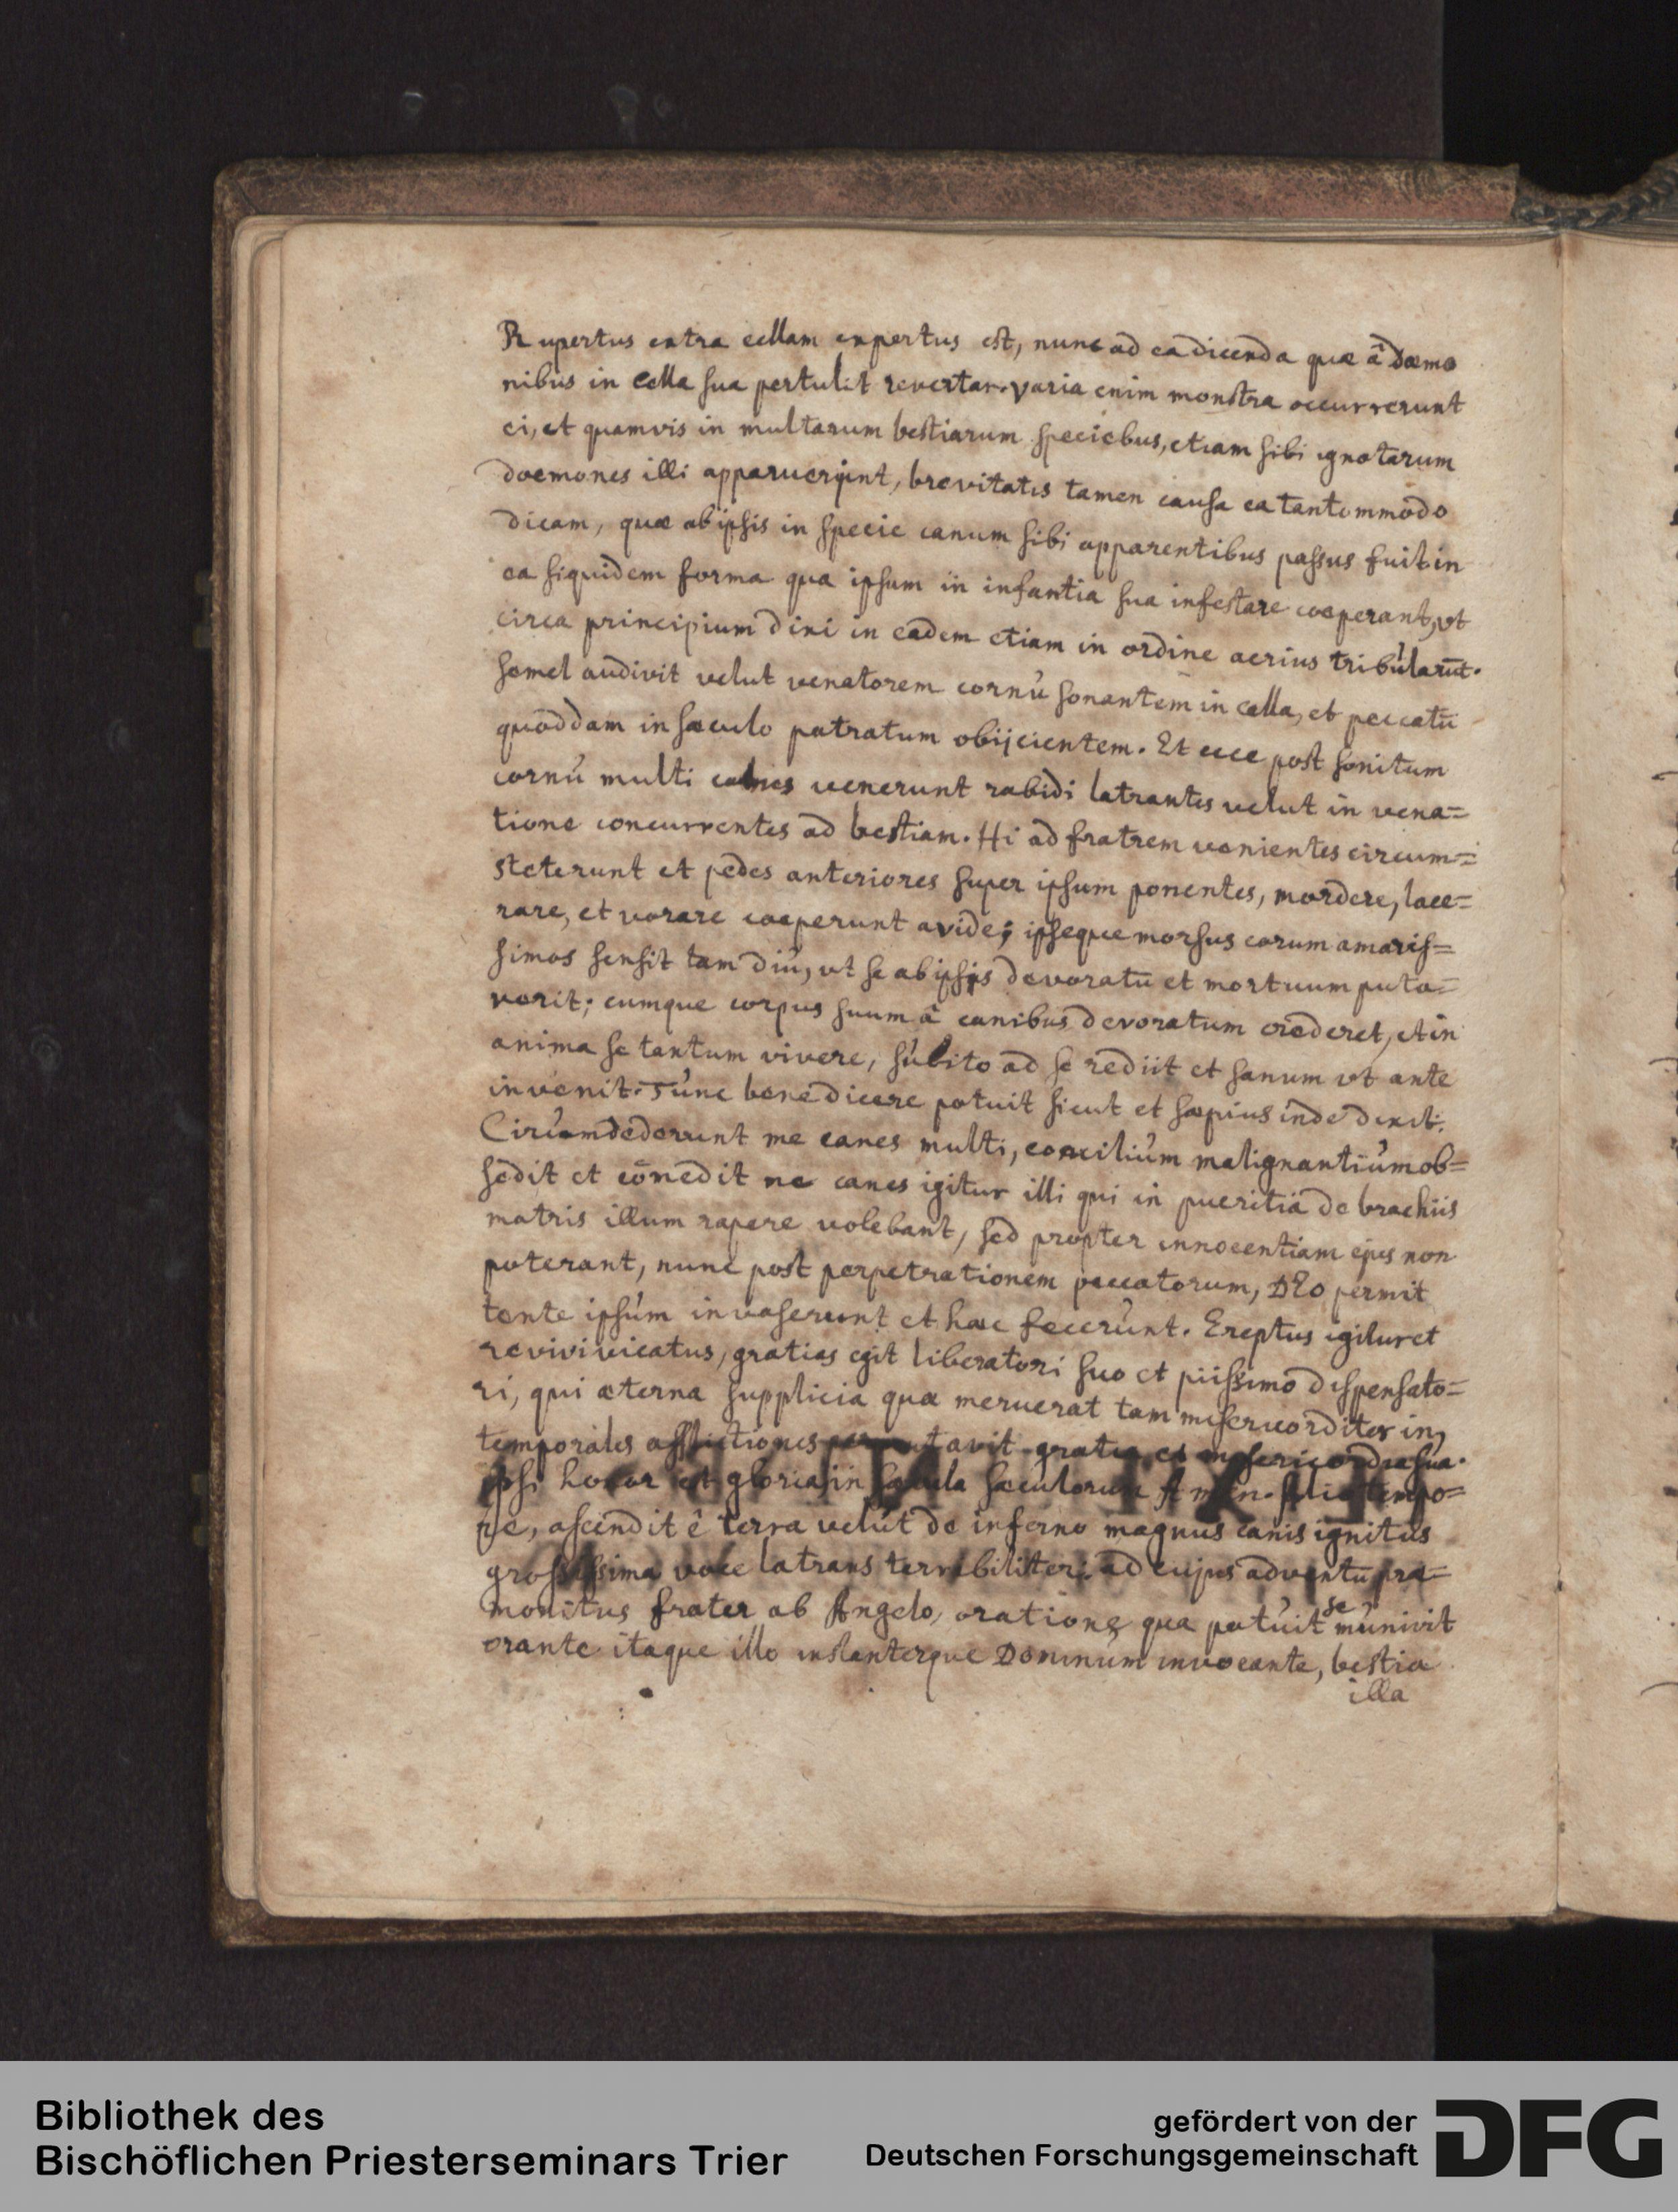 Rupertus extra cellam expertus est, nunc ad ea dicenda quæ â dæmo
nibus in cella sua pertulit revertar. varia enim monstra occurrerunt
ei, et quamvis in multarum bestiarum speciebus, etiam sibi ignotarum
doemones illi apparuerint, brevitatis tamen causa ea tantummodo
dicam, quæ ab ipsis in specie canum sibi apparentibus passus fuit in
ea siquidem forma qua ipsum in infantia sua infestare coeperant, ut
circa principium dixi in eadem etiam in ordine acrius tribularūt.
semel audivit velut venatorem cornu sonantem in cella, et peccatū
quoddam in sæculo patratum obijcientem. Et ecce post sonitum
cornu multi canes venerunt rabidi latrantes velut in vena=
tione concurrentes ad bestiam. Hi ad fratrem venientes circum=
steterunt et pedes anteriores super ipsum ponentes, mordere, lace=
rare, et vorare coeperunt avide; ipseque morsus eorum amaris=
simos sensit tam diu, ut se ab ipsis devoratū et mortuum puta=
verit; cumque corpus suum â canibus devoratum crederet, et in
anima se tantum vivere, subito ad se rediit et sanum ut ante
invenit. Tunc bene dicere potuit sicut et sæpius inde dixit:
Circumdederunt me canes multi, concilium malignantium ob=
sedit et cōnedit me canes igitur illi qui in pueritia de brachiis
matris illum rapere volebant, sed propter innocentiam ejus non
poterant, nunc post perpetrationem peccatorum, DEo permit
tente ipsum invaserunt et hæc fecerunt. Ereptus igitur et
revivivicatus, gratias egit liberatori suo et piissimo dispensato=
ri, qui æterna supplicia quæ meruerat tam misericorditer in
temporales afflictiones gratia et misericordia sua.
ipsi honor et gloria in sæcula sæculorum Amen. alio tempo=
re, ascendit ê terra velut de inferno magnus canis ignitus
grossissima voce latrans terribiliter: ad cujus adventū præ=
monitus frater ab Angelo, oratione qua potuit se munivit
orante itaque illo instanterque Dominum invocante, bestia
illa
Bibliothek des
Bischöflichen Priesterseminars Trier
gefördert von der
Deutschen Forschungsgemeinschaft
DFG